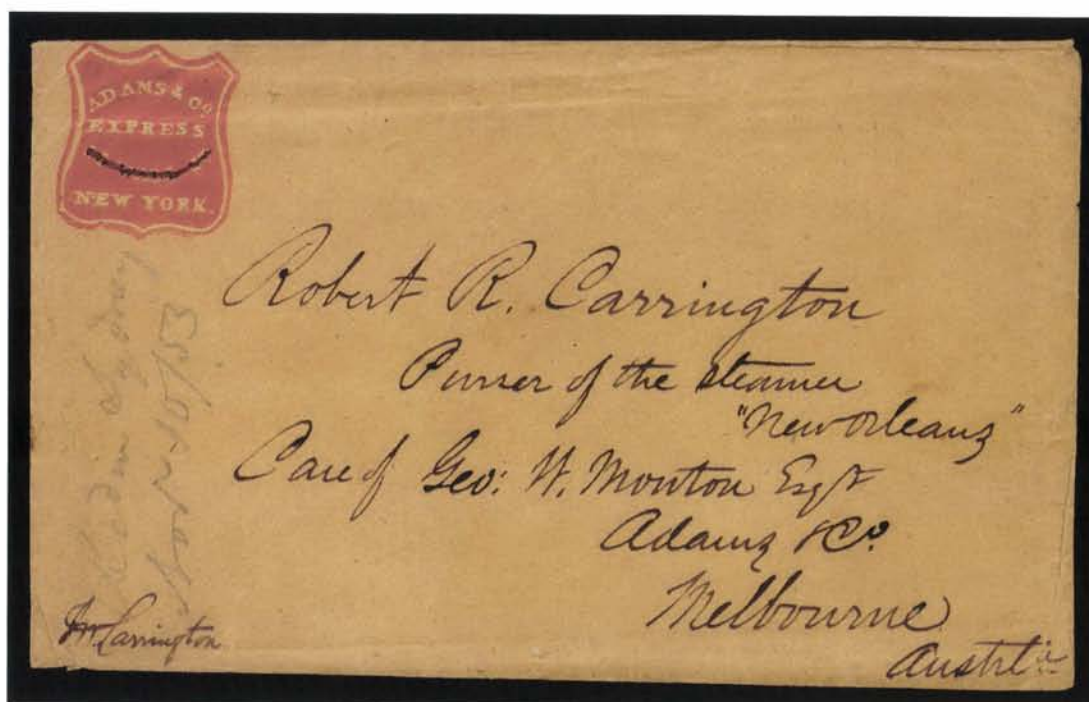 ADAMS & Co
EXPRESS
NEW YORK.
Robert R. Carrington
Purser of the steamer
"New Orleans"
Care of Geo: W. Mouton Esqr
Adams & Co.
Melbourne
Austrla
Sydney
10/53
Carrington